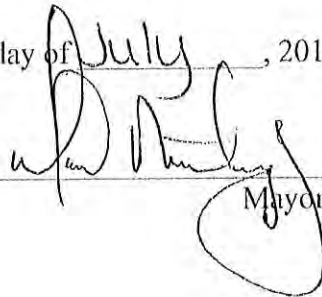 day of July, 201
Mayor